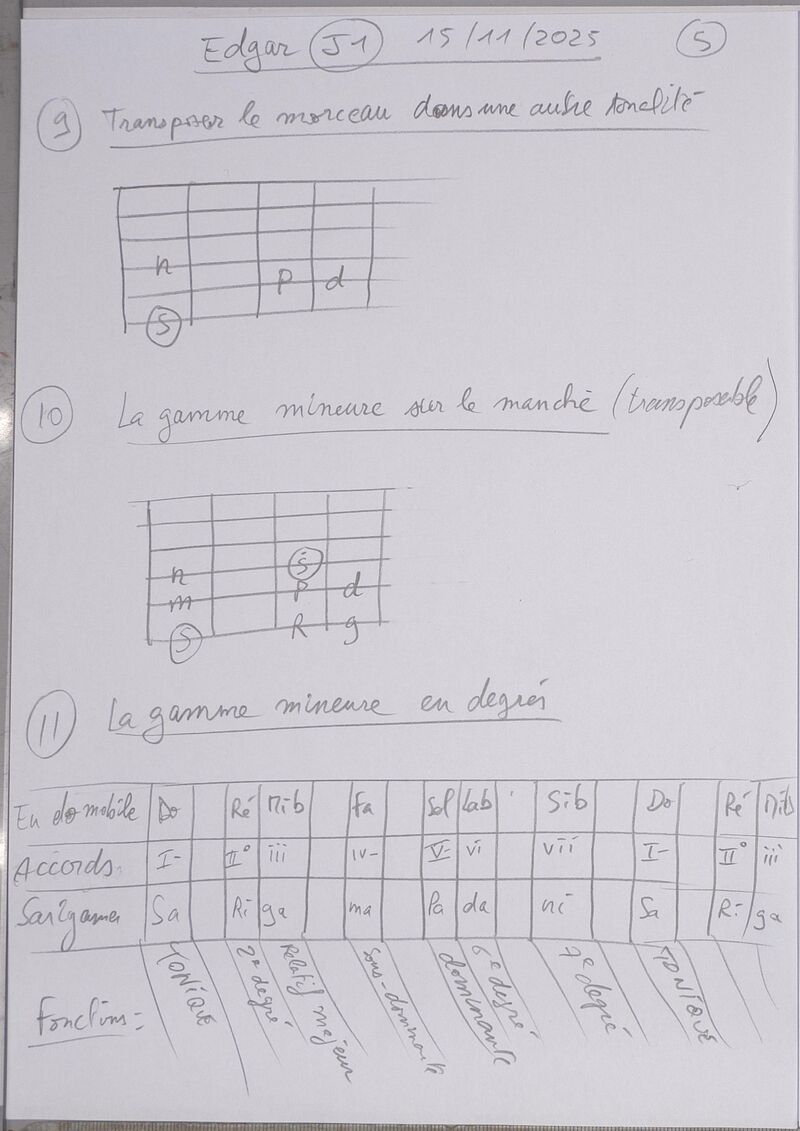 Edgar J1 15/11/2025 5
9 Transposer le morceau dans une autre tonalité
n
P d
S
10 La gamme mineure sur le manche (transposable)
n Ṡ
m P d
S R g
11 La gamme mineure en degrés
En do mobile Do Ré Mib Fa Sol Lab Sib Do Ré Mib
Accords: I- II° iii iv- V- vi vii I- II° iii
Sargames Sa Ri ga ma Pa da ni Sa Ri ga
Fonctions = TONIQUE 2e degré Relatif majeur sous-dominante dominante 6e degré 7e degré TONIQUE